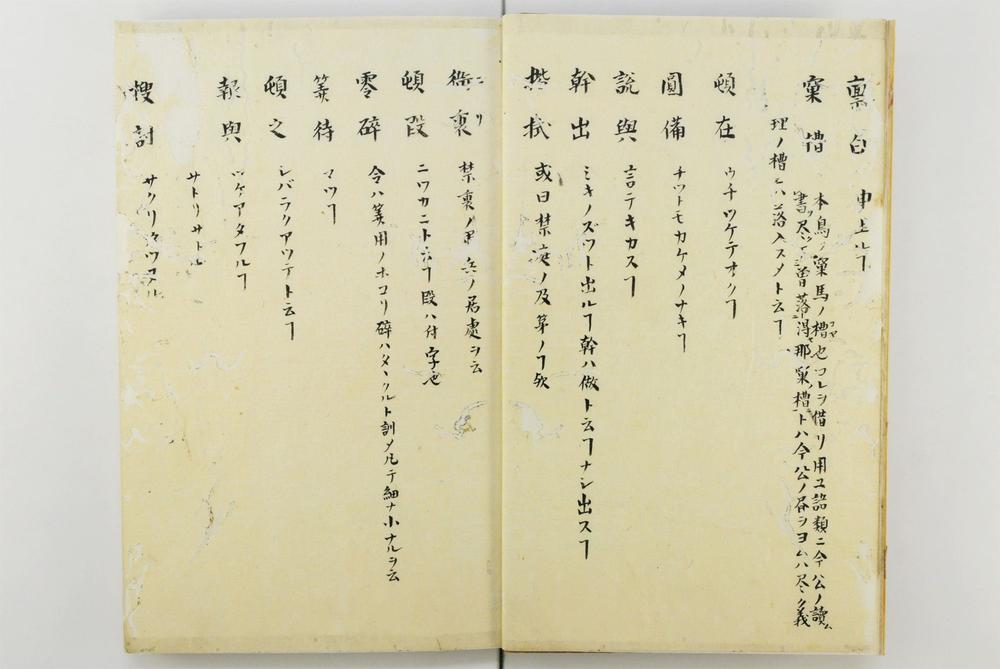 禀白 申上ルヿ
窠槽 本鳥ノ窠馬ノ槽也コレヲ借リ用ユ語類ニ今公ノ讀ム
書尽ク曽落得那窠槽トハ今公ノ
理ノ槽ニハ落入スメト云ヿ
頓在 ウチツケテオクヿ
圓備 チツトモカケメノナキヿ
說與 言テキカスヿ
幹出 ミキノズツト出ルヿ幹ハ做ト云ヿナシ出スヿ
揩拭 或曰禁漢ノ及第ノヿ欤
衙裏 禁裏ノ兵ノ居處ヲ云
頓段 ニワカニト云ヿ段ハ付字也
零碎 令ハ筭用ノホコリ碎ハクタクルト訓メ凡テ細ナ小ナルヲ云
等待 マツヿ
頓之 シバラクアツテト云ヿ
報與 ツケアタフルヿ
サトリサトル
搜討